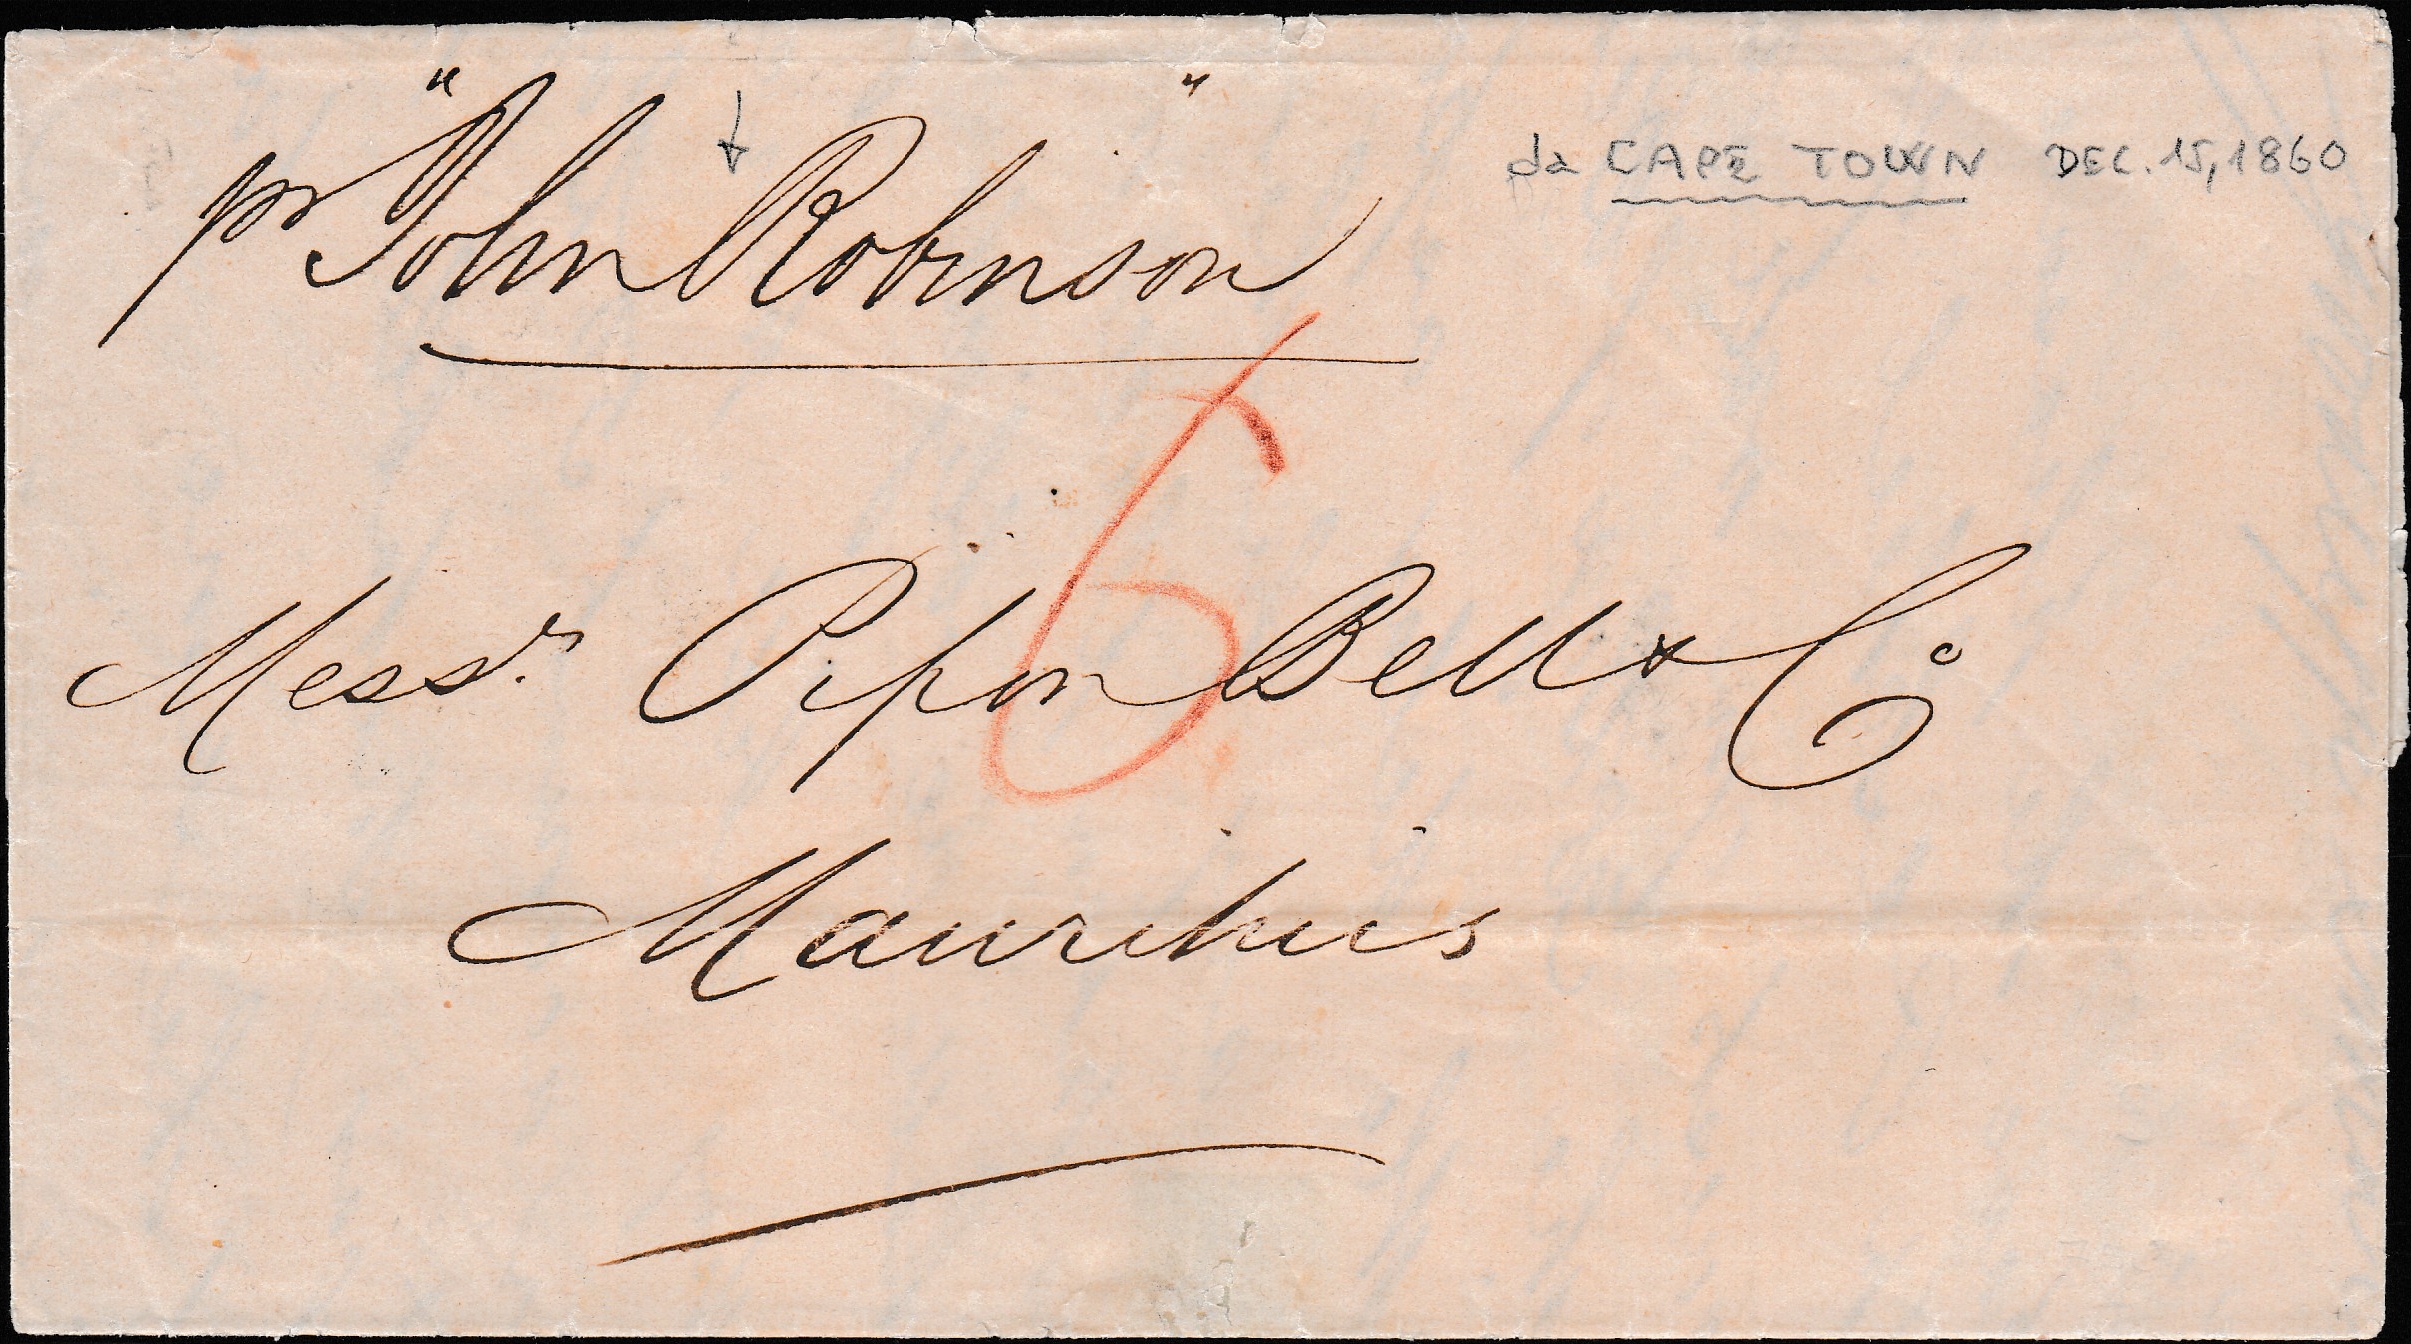 pr "John Robinson"
da CAPE TOWN DEC. 15, 1860
6
Messrs. Pipon Bell & Co
Mauritius